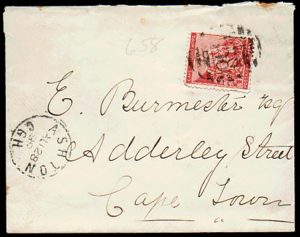 658
E. Burmester Esq
Adderley Street
Cape Town
ASHTON
CGH